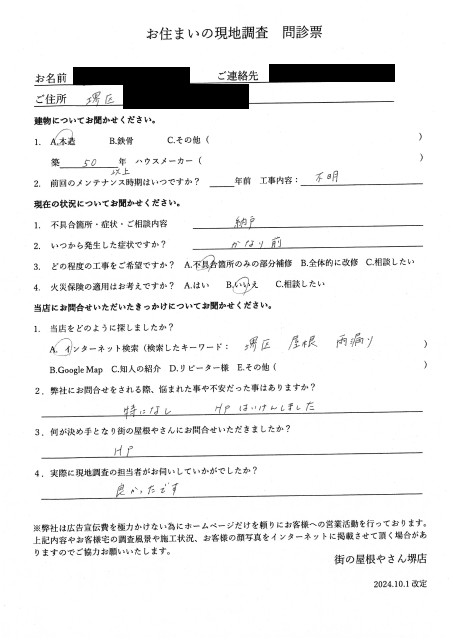 お住まいの現地調査　問診票
お名前　ご連絡先
ご住所　堺区
建物についてお聞かせください。
1.　A.木造　B.鉄骨　C.その他（　）
築　50　年　ハウスメーカー（　）
以上
2.　前回のメンテナンス時期はいつですか？　年前　工事内容：　不明
現在の状況についてお聞かせください。
1.　不具合箇所・症状・ご相談内容　納戸
2.　いつから発生した症状ですか？　かなり前
3.　どの程度の工事をご希望ですか？　A.不具合箇所のみの部分補修　B.全体的に改修　C.相談したい
4.　火災保険の適用はお考えですか？　A.はい　B.いいえ　C.相談したい
当店にお問合せいただいたきっかけについてお聞かせください。
1.　当店をどのように探しましたか？
A. インターネット検索（検索したキーワード：　堺区　屋根　雨漏り　）
B.Google Map　C.知人の紹介　D.リピーター様　E.その他（　）
２. 弊社にお問合せをされる際、悩まれた事や不安だった事はありますか？
特になし　HP はいけんしました
３. 何が決め手となり街の屋根やさんにお問合せいただきましたか？
HP
４. 実際に現地調査の担当者がお伺いしていかがでしたか？
良かったです
※弊社は広告宣伝費を極力かけない為にホームページだけを頼りにお客様への営業活動を行っております。
上記内容やお客様宅の調査風景や施工状況、お客様の顔写真をインターネットに掲載させて頂く場合があ
りますのでご協力お願いいたします。
街の屋根やさん堺店
2024.10.1 改定